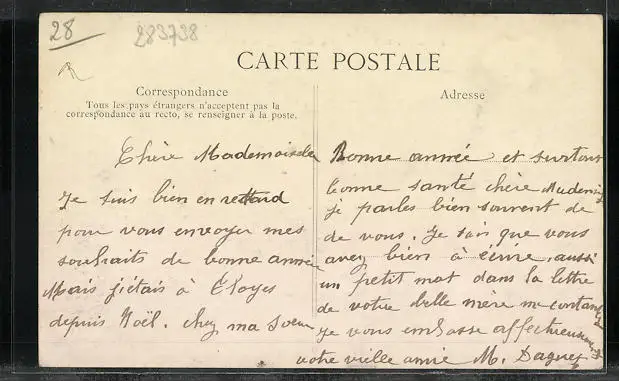 28
283738
CARTE POSTALE
Correspondance
Tous les pays étrangers n'acceptent pas la
correspondance au recto, se renseigner à la poste.
Adresse
Chère Mademoiselle
Je suis bien en retard
pour vous envoyer mes
souhaits de bonne année
Mais j'étais à Eloyes
depuis Noël. chez ma soeur
Bonne année et surtout
bonne santé chère
je parles bien souvent de
de vous. Je sais que vous
avez bien à écrire, aussi
un petit mot dans la lettre
de votre belle mère me
Je vous embrasse affectueusement
votre vielle amie M.